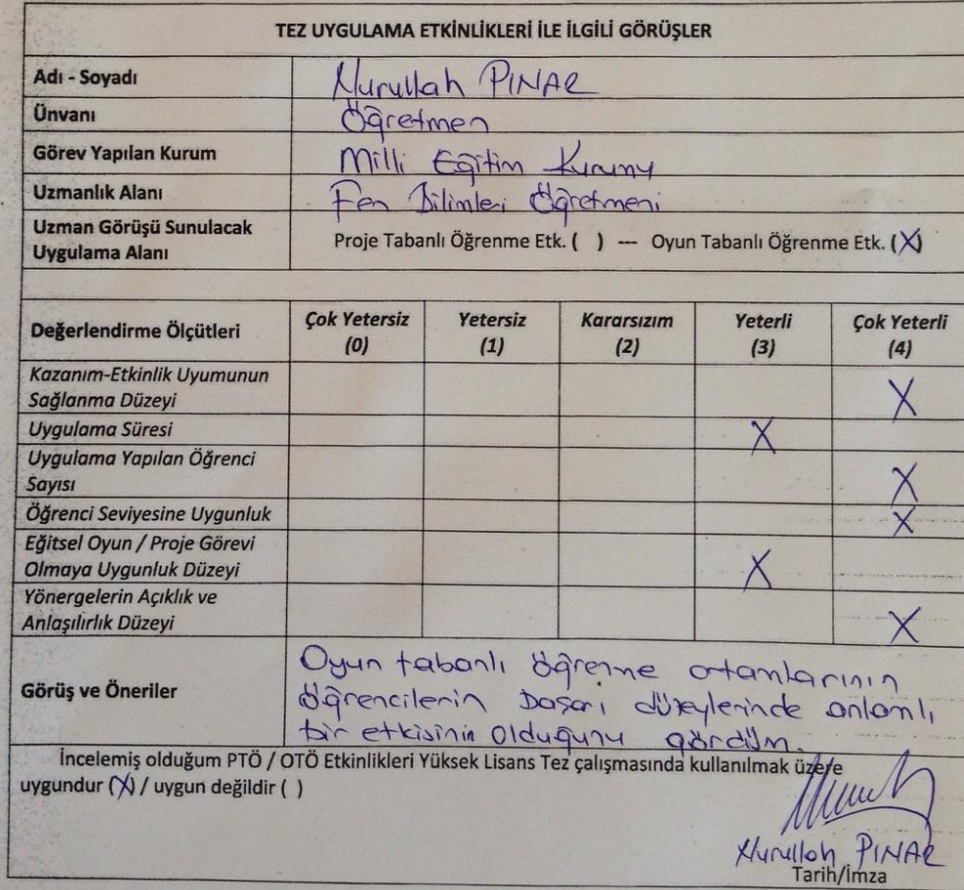 TEZ UYGULAMA ETKİNLİKLERİ İLE İLGİLİ GÖRÜŞLER
Adı - Soyadı Nurullah PINAR
Ünvanı Öğretmen
Görev Yapılan Kurum Milli Eğitim Kurumu
Uzmanlık Alanı Fen Bilimleri Öğretmeni
Uzman Görüşü Sunulacak
Uygulama Alanı Proje Tabanlı Öğrenme Etk. ( ) --- Oyun Tabanlı Öğrenme Etk. (X)
Değerlendirme Ölçütleri Çok Yetersiz Yetersiz Kararsızım Yeterli Çok Yeterli
(0) (1) (2) (3) (4)
Kazanım-Etkinlik Uyumunun
Sağlanma Düzeyi X
Uygulama Süresi X
Uygulama Yapılan Öğrenci
Sayısı X
Öğrenci Seviyesine Uygunluk X
Eğitsel Oyun / Proje Görevi
Olmaya Uygunluk Düzeyi X
Yönergelerin Açıklık ve
Anlaşılırlık Düzeyi X
Görüş ve Öneriler
Oyun tabanlı öğrenme ortamlarının
öğrencilerin başarı düzeylerinde anlamlı
bir etkisinin olduğunu gördüm.
İncelemiş olduğum PTÖ / OTÖ Etkinlikleri Yüksek Lisans Tez çalışmasında kullanılmak üzere
uygundur (X) / uygun değildir ( )
Nurullah PINAR
Tarih/İmza